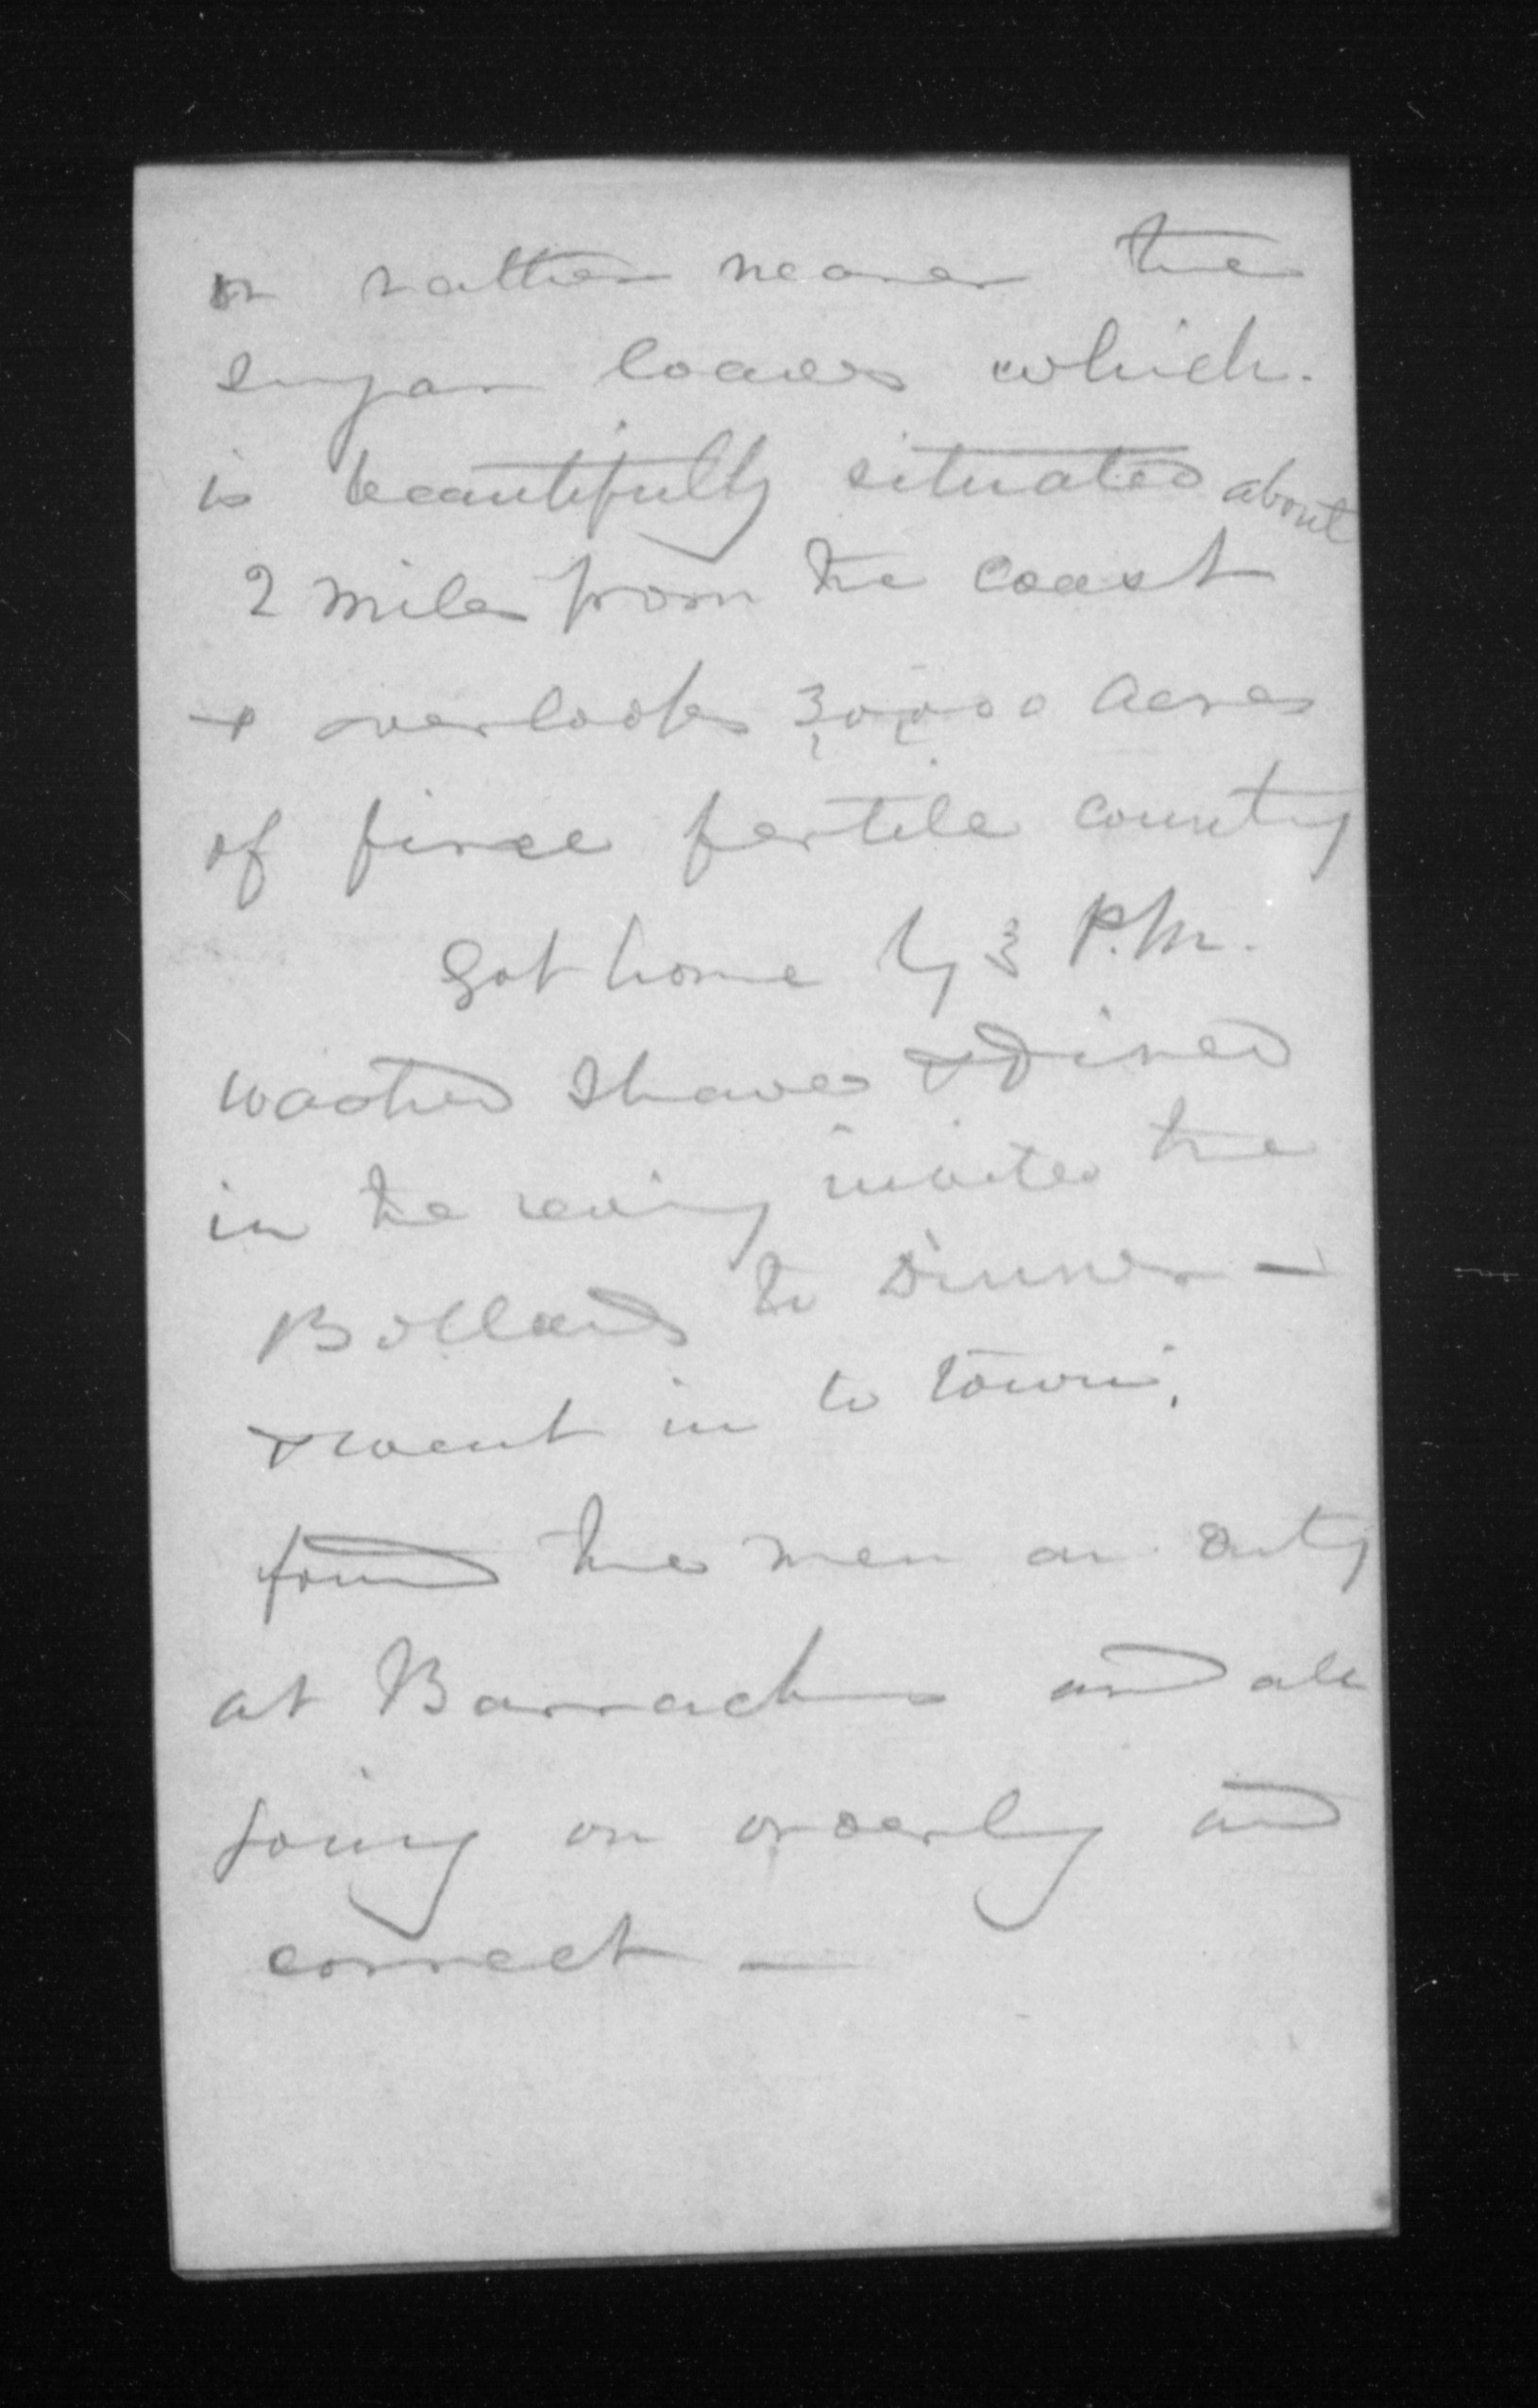 or rather nearer the
sugar loaves which.
is beautifully situated about
2 miles from the coast
& overlooks 30,000 acres
of fine fertile country
Got home by 3 P.M.
washed shaved & dined
in the evening invited the
Bollards to dinner —
& went in to town.
found the men on duty
at Barracks and all
going on orderly and
correct —